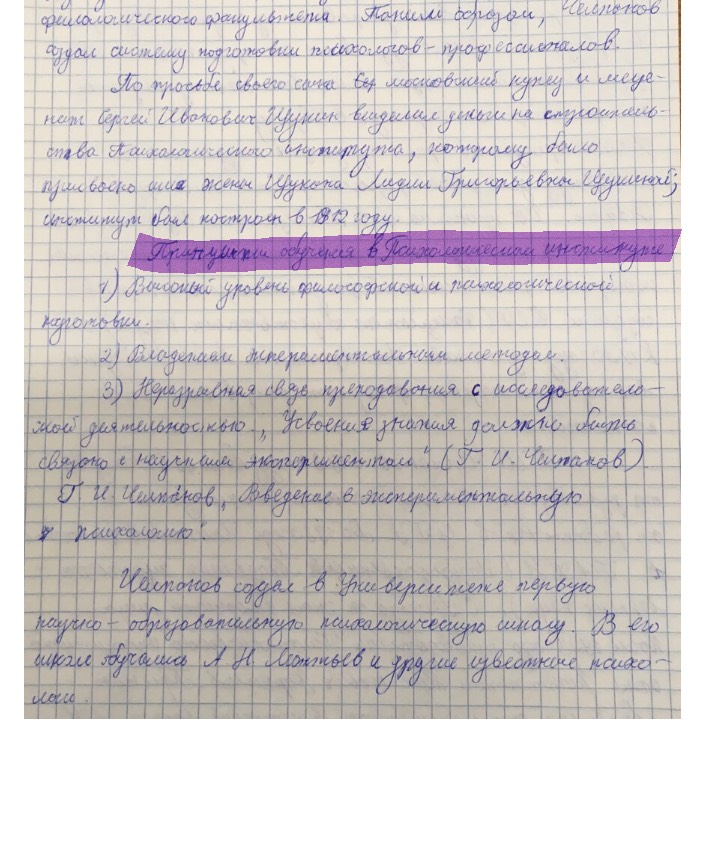 филологического факультета. Таким образом, Челпанов
создал систему подготовки психологов-профессионалов.
По просьбе своего сына московский купец и меце-
нат Сергей Иванович Щукин выделил деньги на строитель-
ства Психологического института, которому было
присвоено имя жены Щукина Лидии Григорьевны Щукиной;
институт был построен в 1912 году.
Принципы обучения в Психологическом институте
1) Высокий уровень философской и психологической
подготовки.
2) Владением экспериментальным методам.
3) Неразрывная связь преподавания с исследователь-
ской деятельностью. „Усвоение знания должно быть
связано с научным экспериментом". (Г. И. Челпанов)
Г. И. Челпанов „Введение в экспериментальную
психологию".
Челпанов создал в Университете первую
научно-образовательную психологическую школу. В его
школе обучались А. Н. Леонтьев и другие известные психо-
логи.